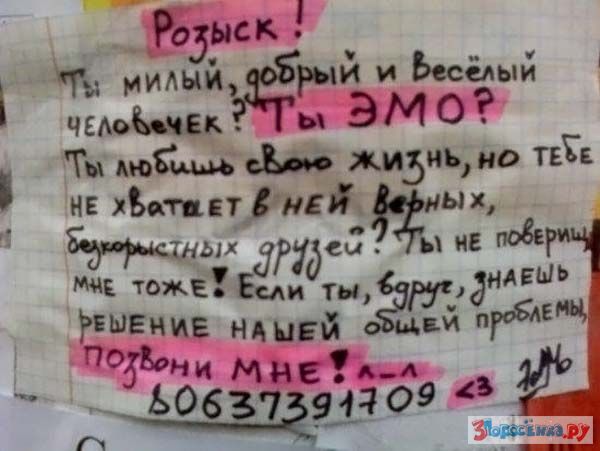 Розыск!
Ты милый, добрый и весёлый
человечек? Ты ЭМО?
Ты любишь свою жизнь, но тебе
не хватает в ней верных,
безкорыстных друзей? Ты не поверишь,
мне тоже! Если ты, вдруг, знаешь
решение нашей общей проблемы,
позвони мне! ^_^
80637391709 <3
3Поросёнка.ру